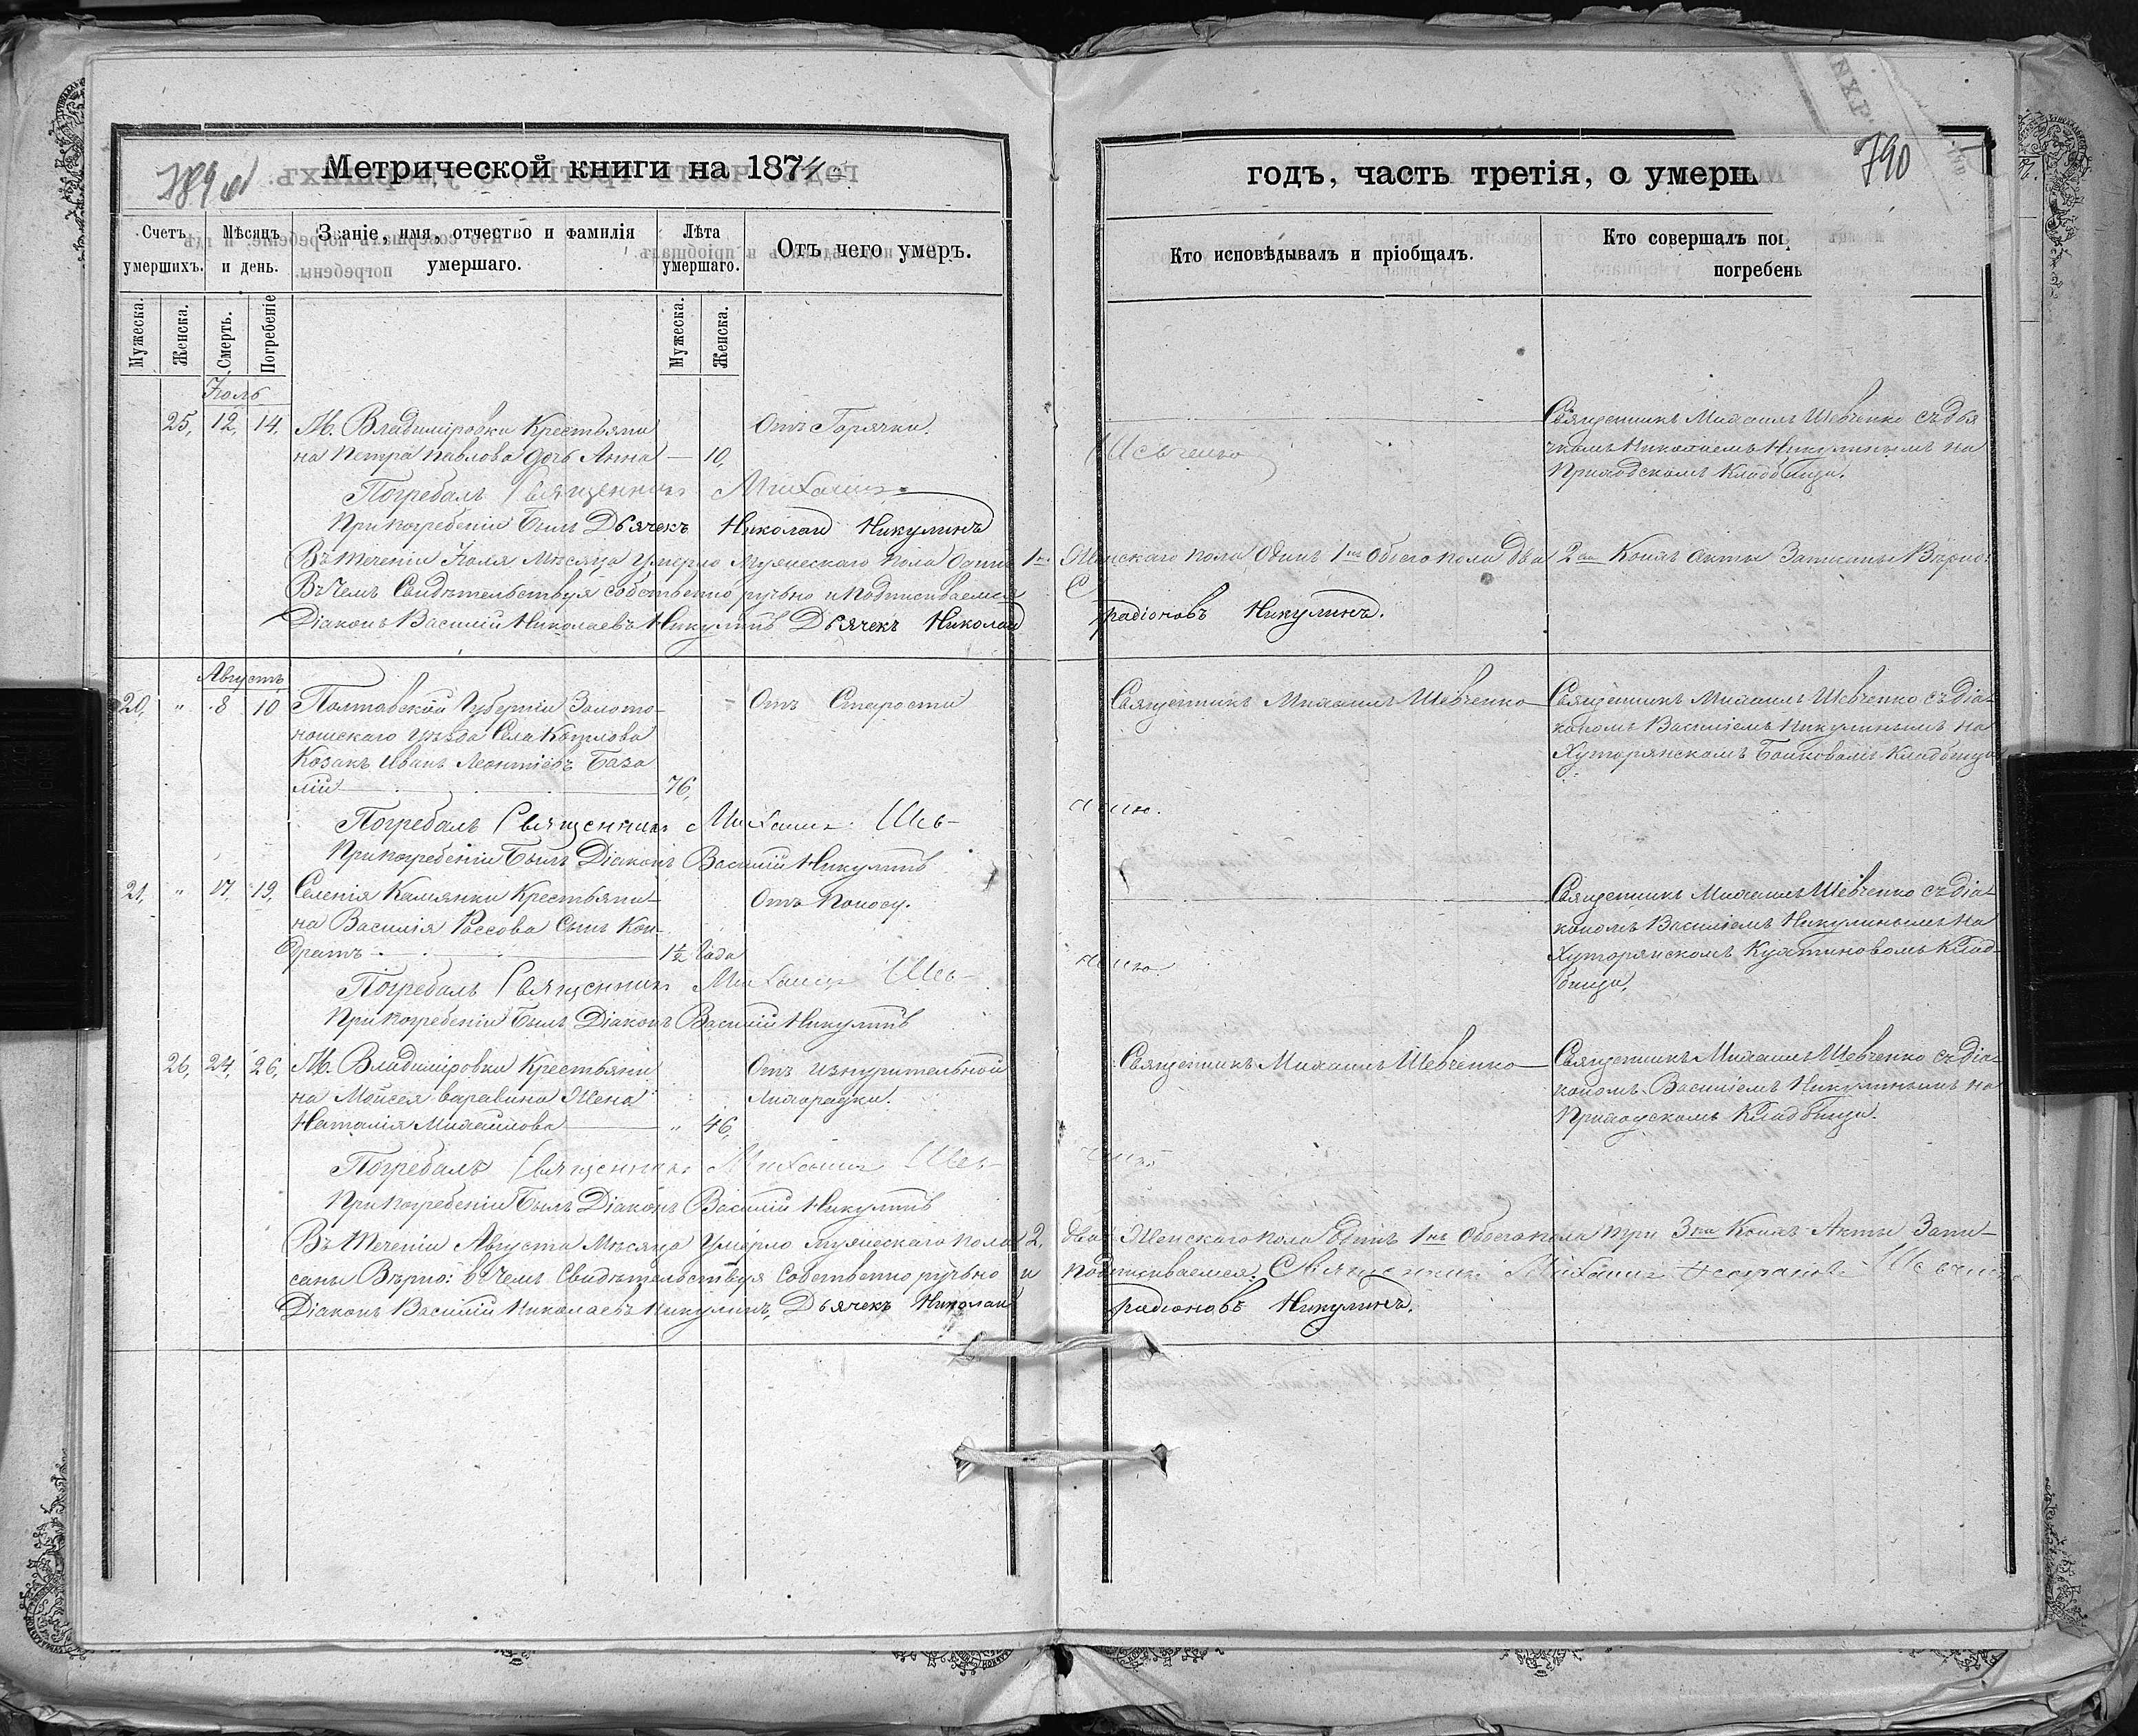 Метрической книги на 1874
Счетъ умершихъ.
Мѣсяцъ и день.
Званіе, имя, отчество и фамилія умершаго.
Лѣта умершаго.
Отъ чего умеръ.
Мужеска.
Женска.
Смерть.
Погребеніе
Мужеска.
Женска.
Іюль
25, 12, 14, М. Владиміровки Крестьяни Отъ Горячки.
на Петра Павлова дочь Анна — 10,
Погребалъ Священникъ Михаилъ
При погребеніи былъ Дьячекъ Николай Никулинъ
Въ теченіи Іюля Мѣсяца Умерло мужескаго пола Одинъ 1
Въ чемъ Свидѣтельствуя собственно ручьно и Подписываемся
Діаконъ Василій Николаевъ Никулинъ Дьячекъ Николай
Августъ
20, " 8 10 Полтавской Губерніи Золото- Отъ Старости
ношскаго уѣзда Села
Козакъ Иванъ Леонтіевъ
76,
Погребалъ Священникъ Михаилъ Шев-
При погребеніи былъ Діаконъ Василій Никулинъ
21, " 17, 19, Селенія Камянки Крестьяни- Отъ Поносу.
на Василія Россова Сынъ Кон-
дратъ 1½ Года
Погребалъ Священникъ Михаилъ Шев-
При погребеніи былъ Діаконъ Василій Никулинъ
26, 24, 26, М. Владиміровки Крестьяни Отъ изнурительной
на Мойсея Варавина Жена Лихорадки.
Наталія Михайлова " 46,
Погребалъ Священникъ Михаилъ Шев-
При погребеніи былъ Діаконъ Василій Никулинъ
Въ теченіи Августа Мѣсяца Умерло мужескаго пола 2,
саны Вѣрно: в чемъ Свидѣтельствуя Собственно ручьно и
Діаконъ Василій Николаевъ Никулинъ, Дьячекъ Николай
790
годъ, часть третія, о умерш
Кто исповѣдывалъ и пріобщалъ.
Кто совершалъ пог
погребень
Священникъ Михаилъ Шевченко съ дья
чкомъ Николаемъ Никулинымъ на
Приходскомъ Кладбищи.
Шевченко
Женскаго пола Одинъ 1 Обоего пола два 2 Коихъ акты Записаны Вѣрно:
Радіоновъ Никулинъ.
Священникъ Михаилъ Шевченко
Священникъ Михаилъ Шевченко съ діа-
кономъ Василіемъ Никулинымъ на
Хуторянскомъ Кладбищи
Священникъ Михаилъ Шевченко съ діа-
кономъ Василіемъ Никулинымъ на
Хуторянскомъ Клад-
бищи.
Священникъ Михаилъ Шевченко
Священникъ Михаилъ Шевченко съ діа-
кономъ Василіемъ Никулинымъ на
Приходскомъ Кладбищи.
два Женскаго пола Одинъ 1 Обоего пола три 3 Коихъ Акты Запи-
подписываемся. Священникъ Михаилъ Шевченко
Радіоновъ Никулинъ.